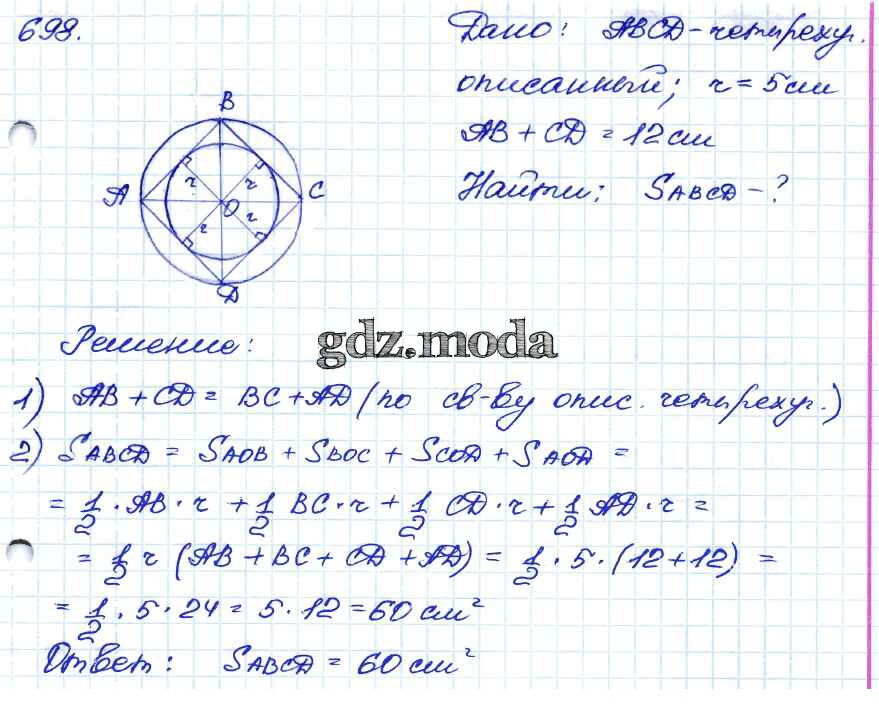 698.
Дано: ABCD - четыреху.
описанный; r = 5 см
AB + CD = 12 см
Найти: SABCD - ?
B
A
C
O
D
r
r
r
r
Решение:
gdz.moda
1) AB + CD = BC + AD (по св-ву опис. четыреху.)
2) SABCD = SAOB + SBOC + SCOD + SAOD =
= 1/2 · AB · r + 1/2 BC · r + 1/2 CD · r + 1/2 AD · r =
= 1/2 r (AB + BC + CD + AD) = 1/2 · 5 · (12 + 12) =
= 1/2 · 5 · 24 = 5 · 12 = 60 см²
Ответ: SABCD = 60 см²